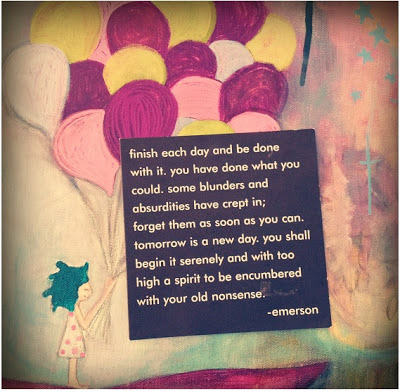 finish each day and be done
with it. you have done what you
could. some blunders and
absurdities have crept in;
forget them as soon as you can.
tomorrow is a new day. you shall
begin it serenely and with too
high a spirit to be encumbered
with your old nonsense.
-emerson